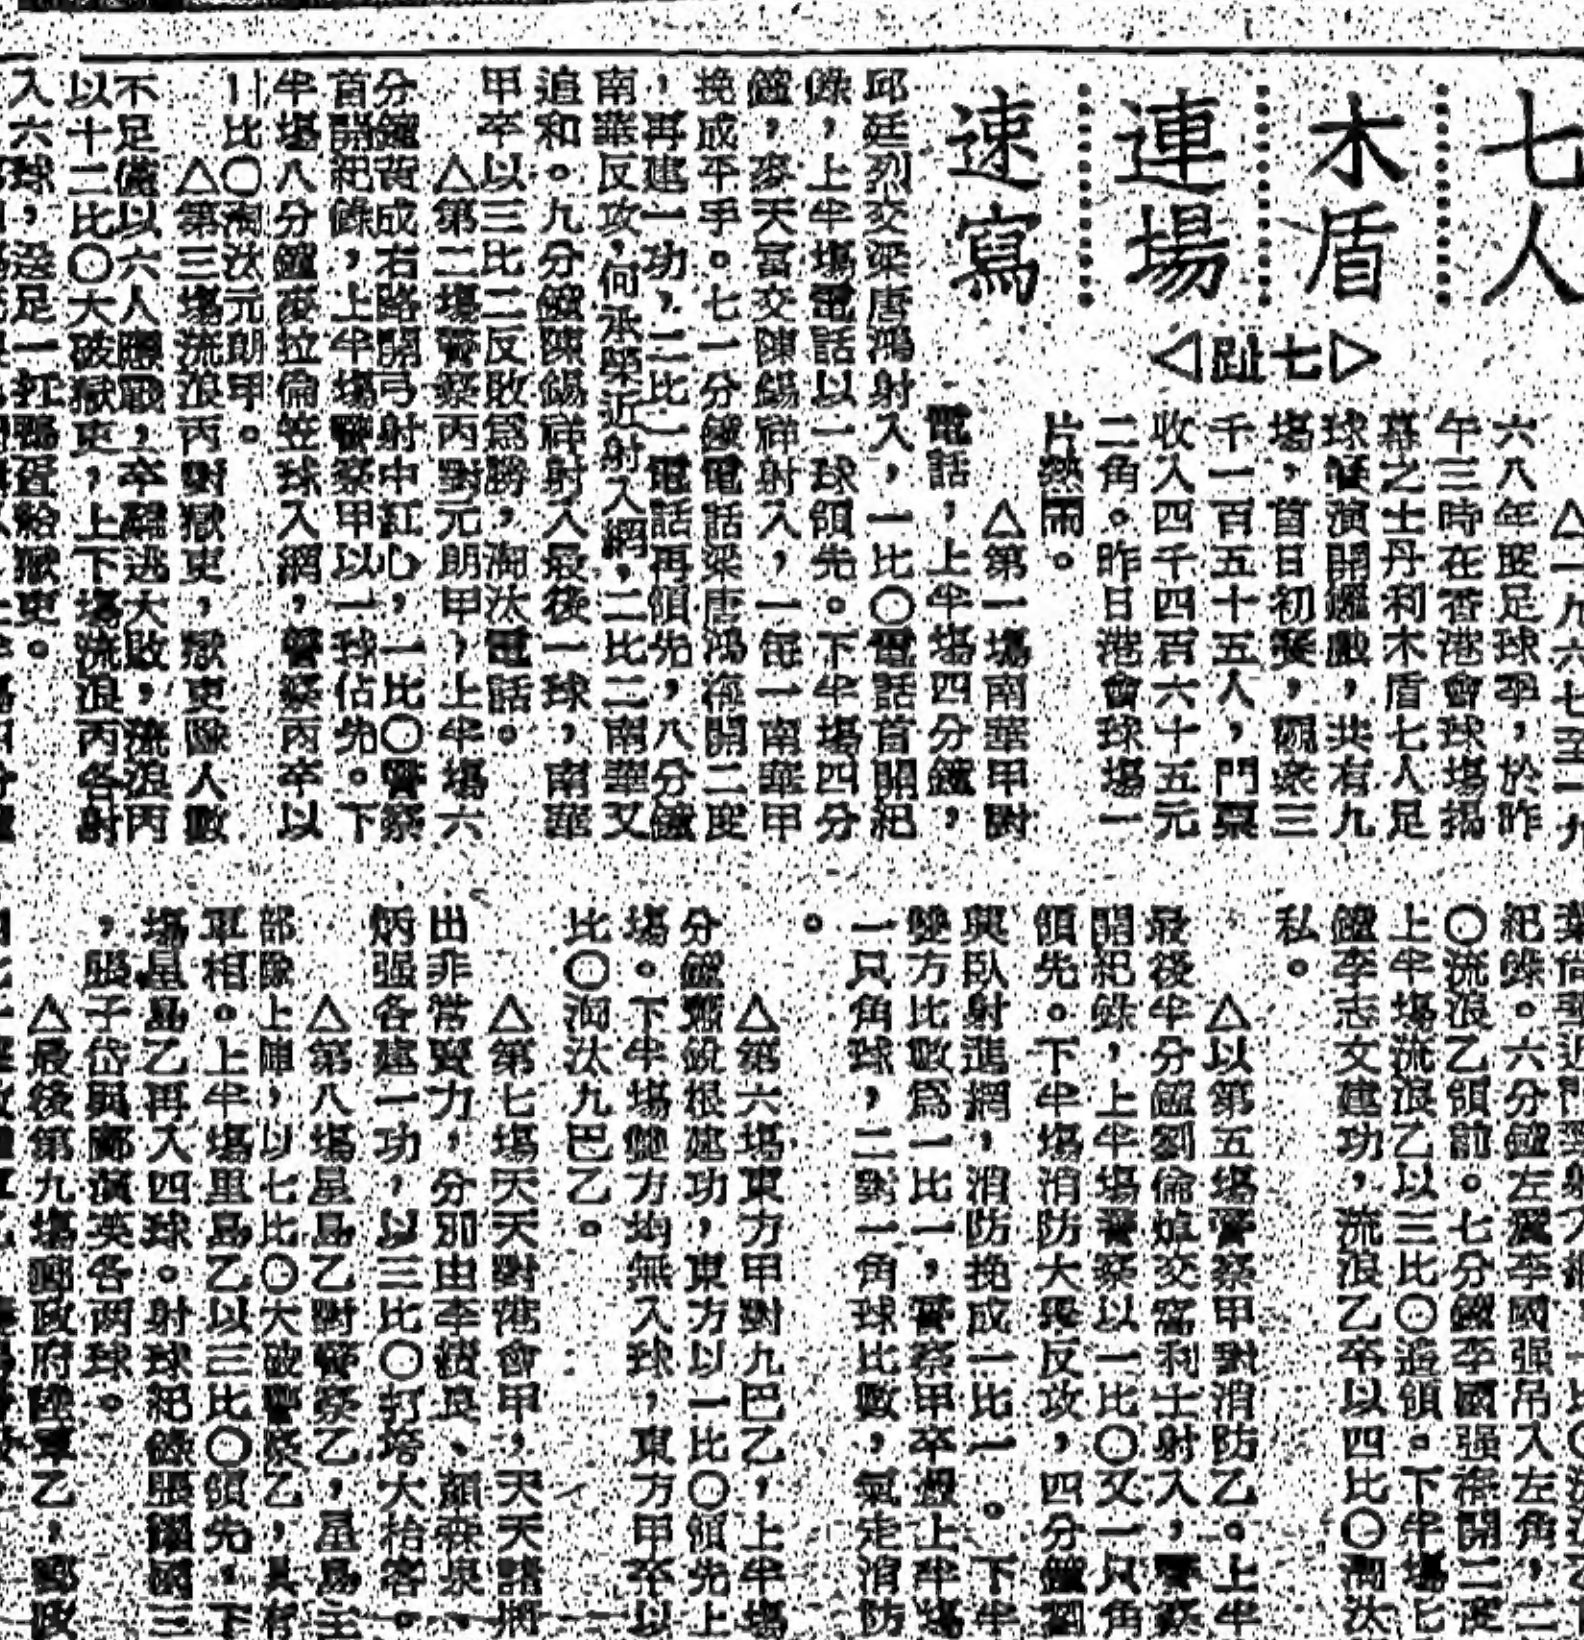 七人
木盾
連場
速寫
▷七趾◁
△一九六七至一九
六八年度足球季,於昨
午三時在香港會球場揭
幕之士丹利木盾七人足
球儀演開鑼戲,共有九
場,首日初賽,觀衆三
千一百五十五人,門票
收入四千四百六十五元
二角。昨日港會球場一
片熱鬧。
△第一場南華甲對
電話,上半場四分鐘,
邱廷烈交梁唐鴻射入,一比〇電話首開紀
錄,上半場電話以一球領先。下半場四分
鐘,麥天富交陳錫祥射入,一每一南華甲
挽成平手。七一分鐘電話梁唐鴻梅開二度
,再建一功,二比一電話再領先,八分鐘
南華反攻,何承榮近射入網,二比二南華又
追和。九分鐘陳錫祥射入最後一球,南華
甲卒以三比二反敗爲勝,淘汰電話。
△第二場警察丙對元朗甲,上半場六
分鐘黃成右路開弓射中紅心,一比〇警察
首開紀錄,上半場警察甲以一球佔先。下
半場八分鐘麥拉倫笠球入網,警察丙卒以
一比〇淘汰元朗甲。
△第三場流浪丙對獄吏,獄吏隊人數
不足僅以六人應戰,卒難逃大敗,流浪丙
以十二比〇大破獄吏,上下場流浪丙各射
入六球,送足一打鴨蛋給獄吏。
紀錄。六分鐘左翼李國强吊入左角,二
〇流浪乙領前。七分鐘李國强梅開二度
上半場流浪乙以三比〇遙領。下半場七
鐘李志文建功,流浪乙卒以四比〇淘汰
私。
△以第五場警察甲對消防乙。上半
最後半分鐘劉倫焯交富利士射入,警察
開紀錄,上半場警察以一比〇又一只角
領先。下半場消防大舉反攻,四分鐘劉
興臥射進網,消防挽成一比一。下半
雙方比數爲一比一,警察甲卒憑上半場
一只角球,二對一角球比數,氣走消防
。
△第六場東方甲對九巴乙,上半場
分鐘蕭銳根建功,東方以一比〇領先上
場。下半場雙方均無入球,東方甲卒以
比〇淘汰九巴乙。
△第七場天天對港會甲,天天諸將
出非常賣力,分別由李積良、顏森泉、
炳强各建一功,以三比〇打垮大枱客。
△第八場星島乙對警察乙,星島主
部隊上陣,以七比〇大破警察乙,具有
軍相。上半場星島乙以三比〇領先,下
場星島乙再入四球。射球紀錄張耀國三
,張子岱與鄺演英各两球。
△最後第九場鄉政府陸軍乙,鄉政